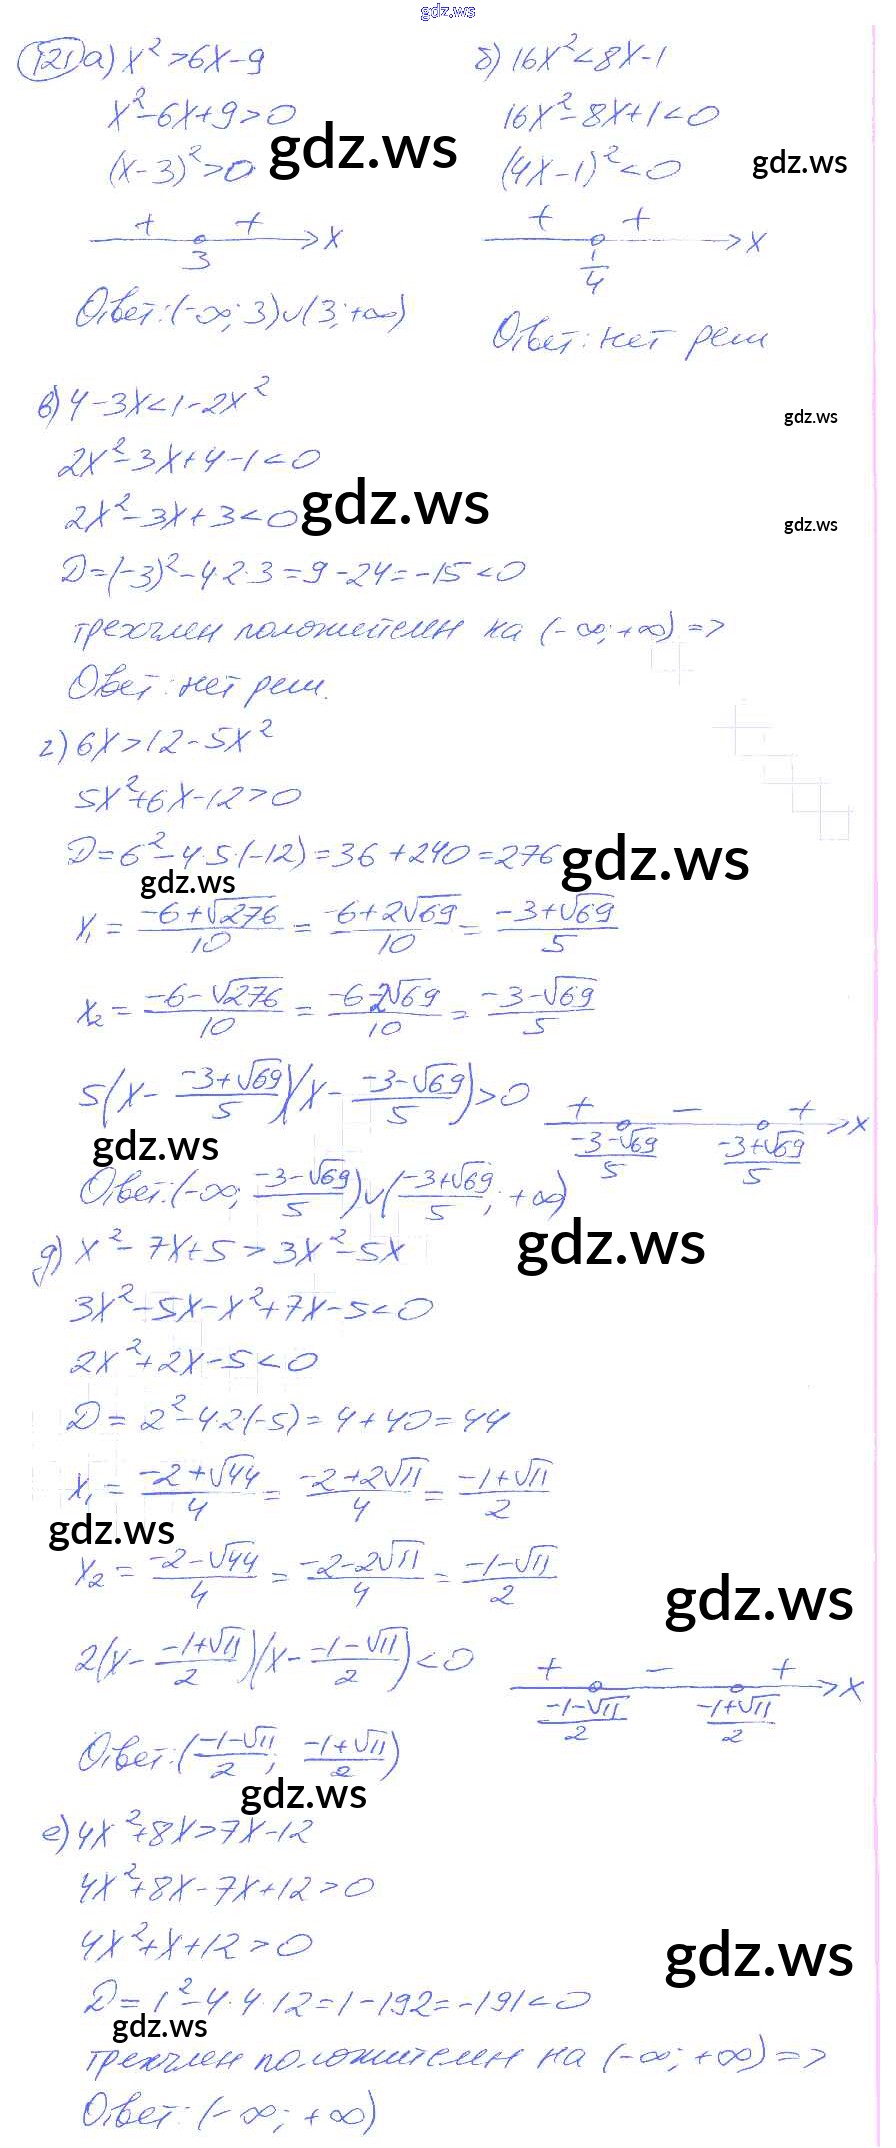 gdz.ws
121 а) x² > 6x - 9
x² - 6x + 9 > 0
(x - 3)² > 0
gdz.ws
+ + x
3
Ответ: (-∞; 3) ∪ (3; +∞)
б) 16x² < 8x - 1
16x² - 8x + 1 < 0
(4x - 1)² < 0
gdz.ws
+ + x
1/4
Ответ: нет реш
в) 4 - 3x < 1 - 2x²
gdz.ws
2x² - 3x + 4 - 1 < 0
2x² - 3x + 3 < 0
gdz.ws
gdz.ws
D = (-3)² - 4·2·3 = 9 - 24 = -15 < 0
трехчлен положителен на (-∞; +∞) =>
Ответ: нет реш.
г) 6x > 12 - 5x²
5x² + 6x - 12 > 0
D = 6² - 4·5·(-12) = 36 + 240 = 276
gdz.ws
gdz.ws
x₁ = (-6+√276)/10 = (-6+2√69)/10 = (-3+√69)/5
x₂ = (-6-√276)/10 = (-6-2√69)/10 = (-3-√69)/5
5(x - (-3+√69)/5)(x - (-3-√69)/5) > 0
+ - + x
(-3-√69)/5 (-3+√69)/5
gdz.ws
Ответ: (-∞; (-3-√69)/5) ∪ ((-3+√69)/5; +∞)
gdz.ws
д) x² - 7x + 5 > 3x² - 5x
3x² - 5x - x² + 7x - 5 < 0
2x² + 2x - 5 < 0
D = 2² - 4·2·(-5) = 4 + 40 = 44
x₁ = (-2+√44)/4 = (-2+2√11)/4 = (-1+√11)/2
gdz.ws
x₂ = (-2-√44)/4 = (-2-2√11)/4 = (-1-√11)/2
gdz.ws
2(x - (-1+√11)/2)(x - (-1-√11)/2) < 0
+ - + x
(-1-√11)/2 (-1+√11)/2
Ответ: ((-1-√11)/2; (-1+√11)/2)
gdz.ws
е) 4x² + 8x > 7x - 12
4x² + 8x - 7x + 12 > 0
4x² + x + 12 > 0
gdz.ws
D = 1² - 4·4·12 = 1 - 192 = -191 < 0
gdz.ws
трехчлен положителен на (-∞; +∞) =>
Ответ: (-∞; +∞)